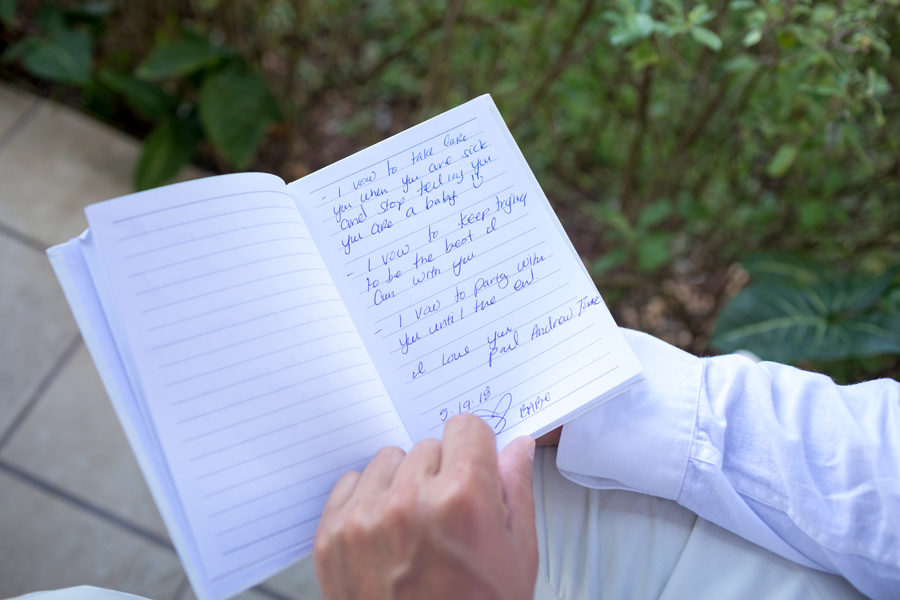 - I vow to take care
you when you are sick
and stop telling you
you are a baby
- I vow to keep trying
to be the best I
can with you
- I vow to party with
you until the end
I love you
Paul Andrew
5.19.18
BABE